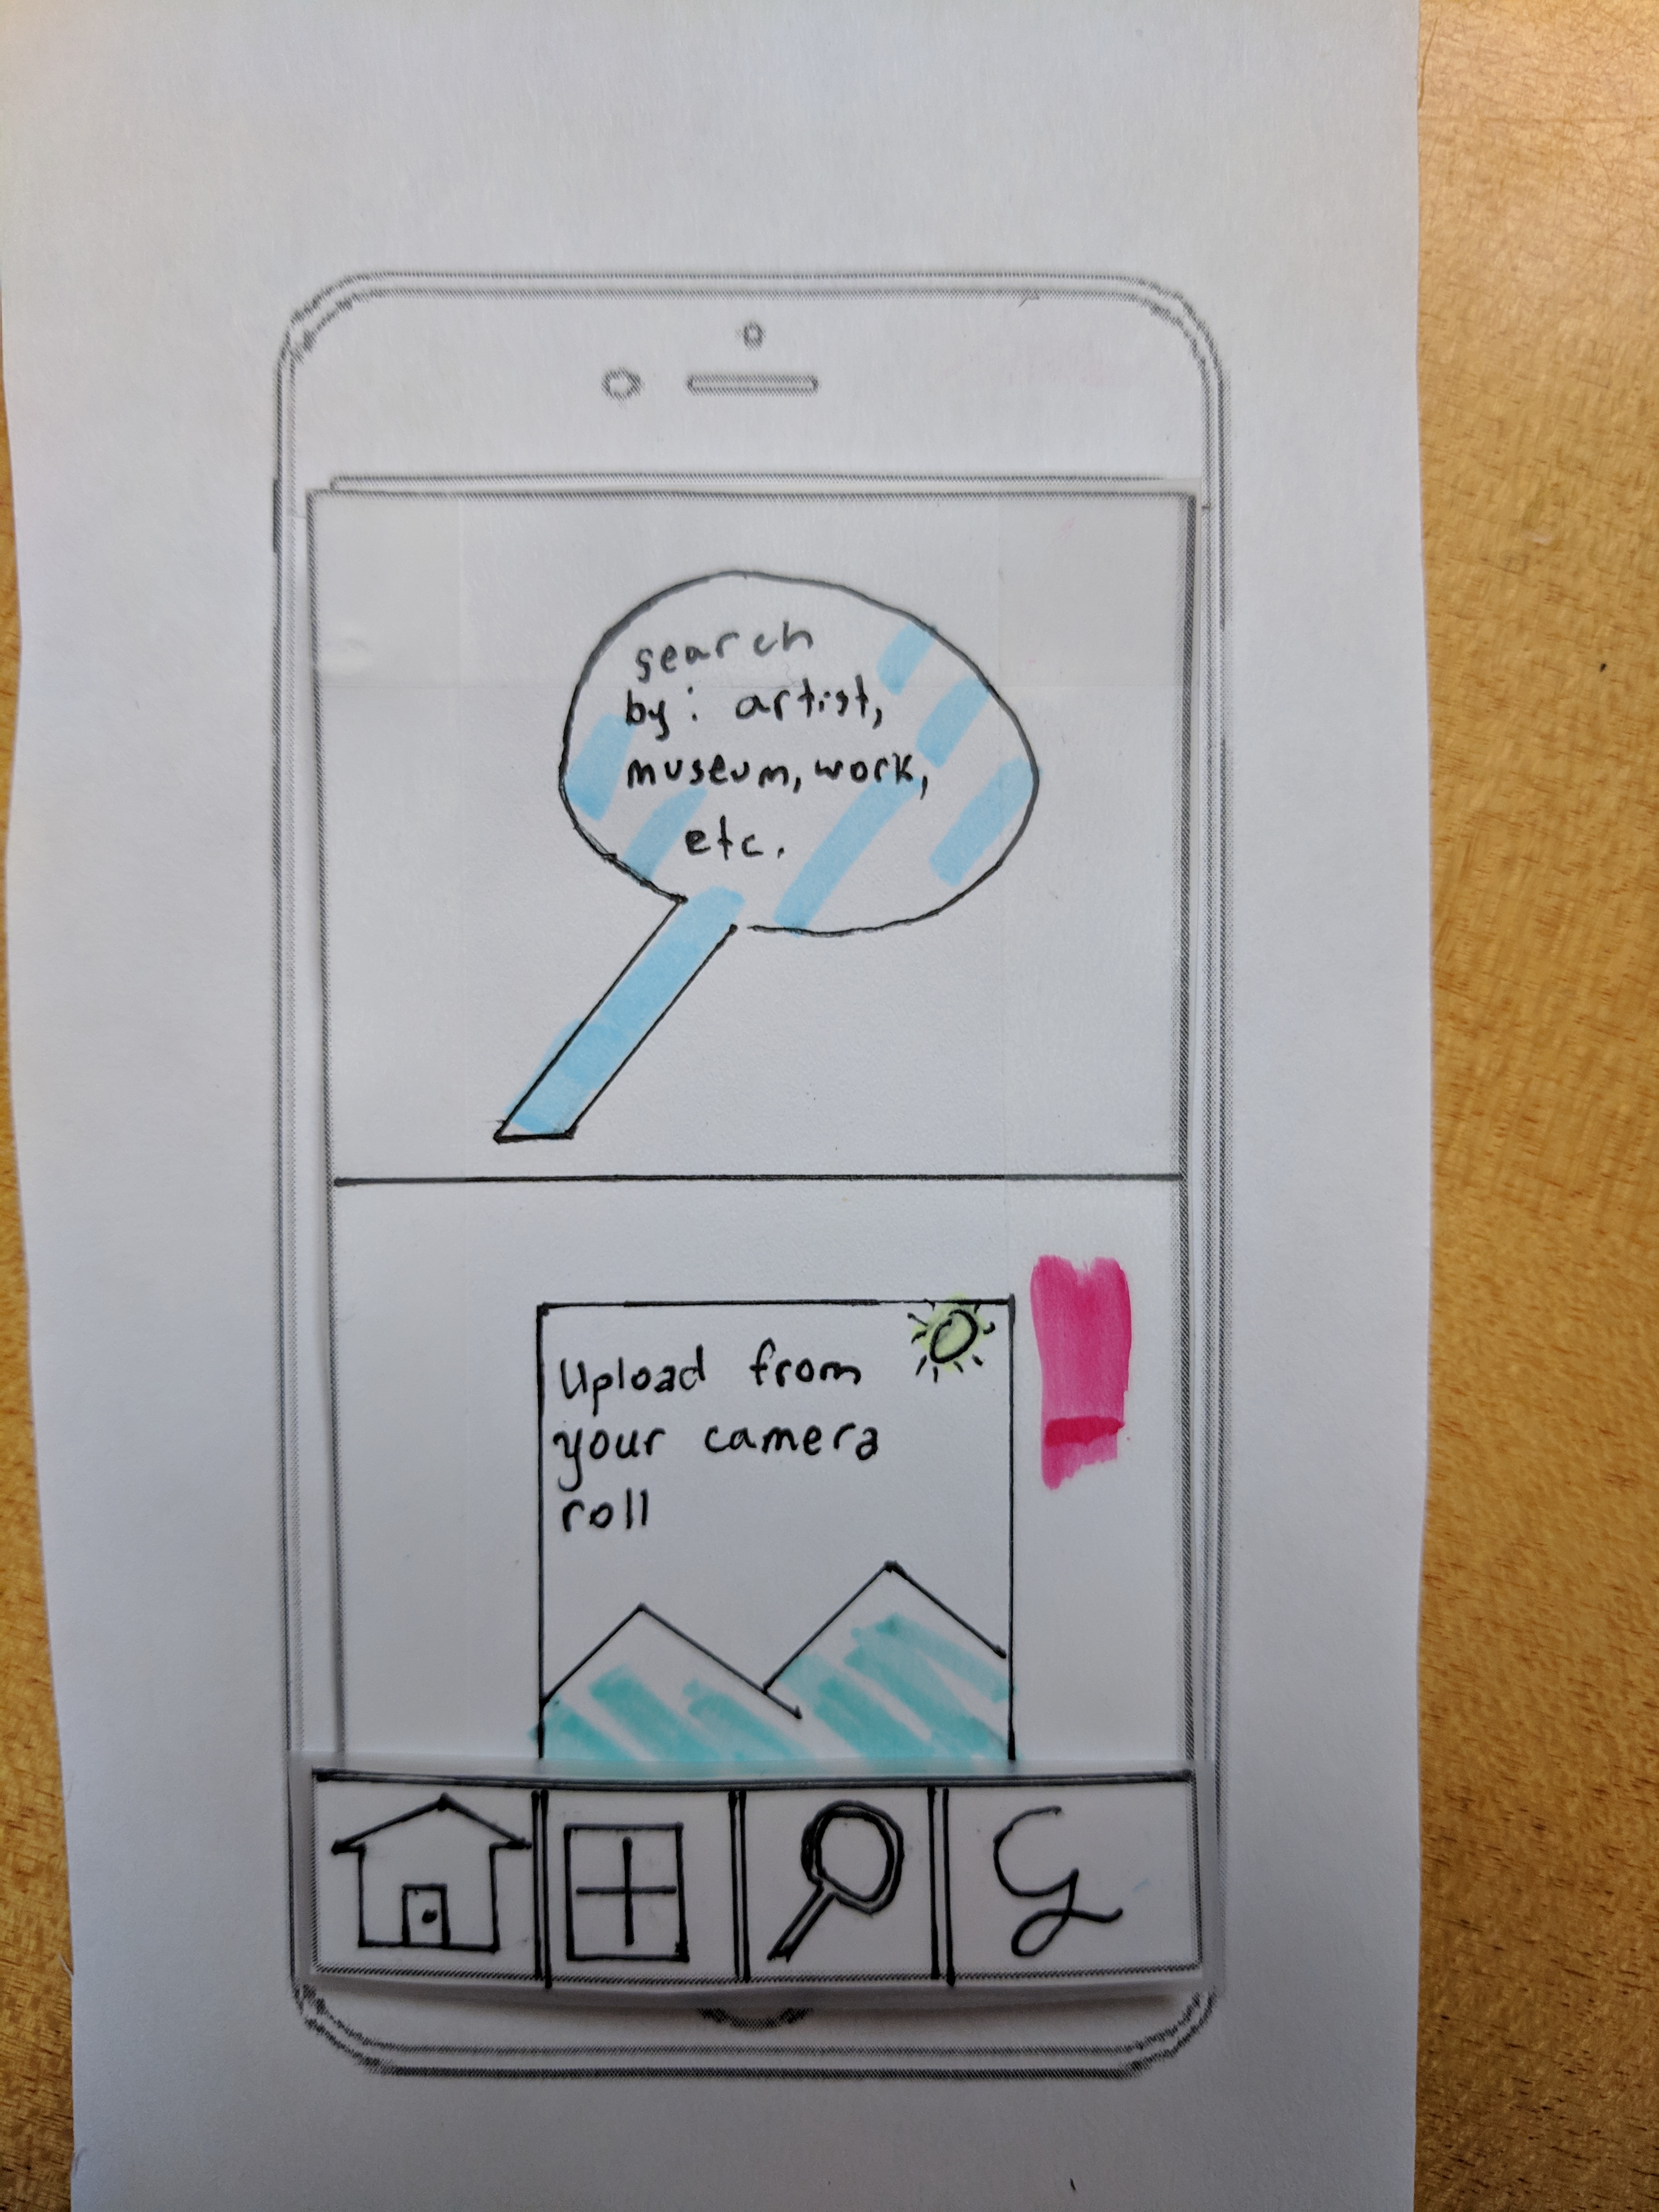 search
by: artist,
museum, work,
etc.
Upload from
your camera
roll